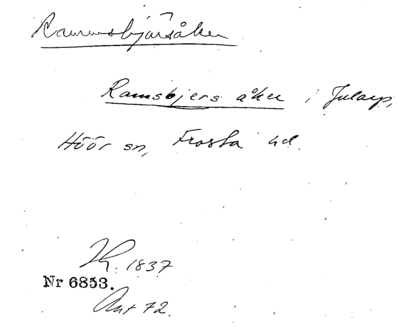 Rammsbjärsåker
Ramsbjers åker i Jularp,
Höör sn, Frosta hd.
1837
Nr 6853.
Ant 72.